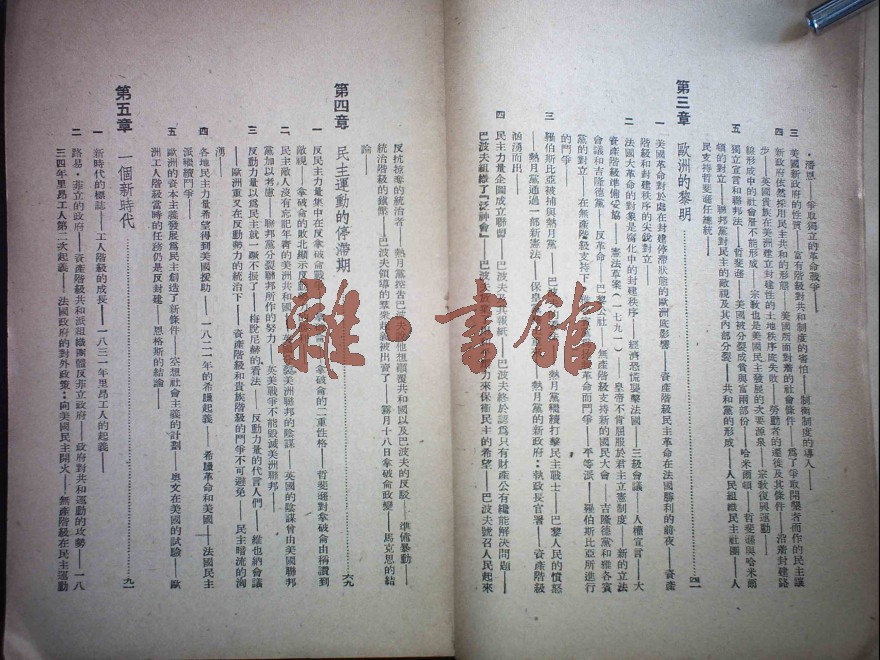 ・潘恩——爭取獨立的革命戰爭——
三 美國新政府的性質——富有階級對共和制度的害怕——制衡制度的導入——
四 新政府依然採用民主共和的形態——美國所面對着的社會條件——爲了爭取開墾者而作的民主讓
步——英國貴族在美洲建立封建性的土地秩序底失敗——勞動者的遷徙及其條件——沿着封建路
線形成中的社會層不能形成——宗教也是美國民主發展的次要源泉——宗教復興運動——
五 獨立宣言和聯邦法——哲斐遜——美國被分裂成貧與富兩部份——哈米爾頓——哲斐遜與哈米爾
頓的對立——聯邦黨對民主的敵視及其內部分裂——共和黨的形成——人民組織民主社團——人
民支持哲斐遜任總統——
第三章 歐洲的黎明 四一
一 美國革命對於處在封建停滯狀態的歐洲底影響——資產階級民主革命在法國勝利的前夜——資產
階級和封建秩序的尖銳對立——
二 法國大革命的對象是腐化中的封建秩序——經濟恐慌襲擊法國——三級會議——人權宣言——大
資產階級準備妥協——憲法草案（一七九一）——皇帝不肯屈服於君主立憲制度——新的立法
會議和吉隆德黨——反革命——巴黎公社——無產階級支持新的國民大會——吉隆德黨和雅各賓
黨的對立——在無產階級支持下 革命而鬥爭——平等派——羅伯斯比亞所進行
的鬥爭——
三 羅伯斯比亞被捕與熱月黨—— 熱月黨繼續打擊民主戰士——巴黎人民的憤怒
——熱月黨通過一部新憲法—— 熱月黨的新政府：執政長官署——資產階級
洶湧而出——
四 民主力量企圖成立聯盟—— 報紙——巴波夫終於認爲只有財產公有纔能解決問題——
巴波夫組織了「泛神會」—— 力來保衞民主的希望——巴波夫號召人民起來
反抗掠奪的統治者——熱月黨控告巴波夫 他想顚覆共和國以及巴波夫的反駁——準備暴動——
統治階級的鎭壓——巴波夫領導的羣衆起義被出賣了——霧月十八日拿破崙政變——馬克思的結
論——
第四章 民主運動的停滯期 六九
一 反民主力量集中在反拿破崙戰 拿破崙的二重性格——哲斐遜對拿破崙由稱讚到
敵視——拿破崙的敗北顯示反動
二 民主敵人沒有忘記年靑的美洲共和國—— 美洲聯邦的陰謀——英國的陰謀曾由美國聯邦
黨加以考慮——聯邦黨分裂聯邦所作的努力——英美戰爭不能毀滅美洲聯邦——
三 反動力量以爲民主就一蹶不振了——梅特尼赫的看法——反動力量的代言人們——維也納會議
——歐洲重又在反動勢力的統治下——資產階級和貴族階級的鬥爭不可避免——民主暗流的洶
湧——
四 各地民主力量希望得到美國援助——一八二一年的希臘起義——希臘革命和美國——法國民主
派繼續鬥爭——
五 歐洲的資本主義發展爲民主創造了新條件——空想社會主義的計劃——奧文在美國的試驗——歐
洲工人階級當時的任務仍是反封建——恩格斯的結論——
第五章 一個新時代 九一
一 新時代的標誌——工人階級的成長——一八三一年里昂工人的起義——
二 路易・菲立的政府——資產階級共和派組織團體反菲立政府——政府對共和運動的攻勢——一八
三四年里昂工人第二次起義——法國政府的對外政策：向美國民主開火——無產階級在民主運動
雜・書館